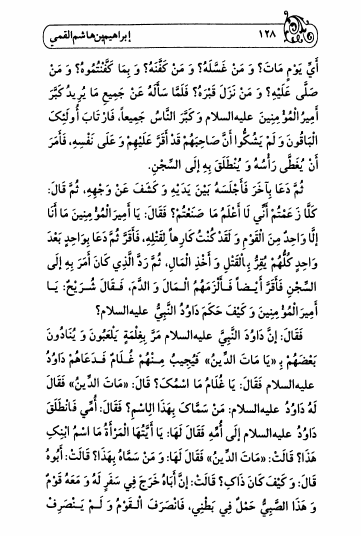 ١٢٨
إبراهيم بن هاشم القمي
أَيِّ يَوْمٍ مَاتَ؟ وَ مَنْ غَسَّلَهُ؟ وَ مَنْ كَفَّنَهُ؟ وَ بِمَا كَفَّنْتُمُوهُ؟ وَ مَنْ
صَلَّى عَلَيْهِ؟ وَ مَنْ نَزَلَ قَبْرَهُ؟ فَلَمَّا سَأَلَهُ عَنْ جَمِيعِ مَا يُرِيدُ كَبَّرَ
أَمِيرُ الْمُؤْمِنِينَ عليه‌السلام وَ كَبَّرَ النَّاسُ جَمِيعاً، فَارْتَابَ أُولَئِكَ
الْبَاقُونَ وَ لَمْ يَشُكُّوا أَنَّ صَاحِبَهُمْ قَدْ أَقَرَّ عَلَيْهِمْ وَ عَلَى نَفْسِهِ، فَأَمَرَ
أَنْ يُغَطَّى رَأْسُهُ وَ يُنْطَلَقَ بِهِ إِلَى السِّجْنِ.
ثُمَّ دَعَا بِآخَرَ فَأَجْلَسَهُ بَيْنَ يَدَيْهِ وَ كَشَفَ عَنْ وَجْهِهِ، ثُمَّ قَالَ:
كَلَّا زَعَمْتُمْ أَنِّي لَا أَعْلَمُ مَا صَنَعْتُمْ؟ فَقَالَ: يَا أَمِيرَ الْمُؤْمِنِينَ مَا أَنَا
إِلَّا وَاحِدٌ مِنَ الْقَوْمِ وَ لَقَدْ كُنْتُ كَارِهاً لِقَتْلِهِ، فَأَقَرَّ ثُمَّ دَعَا بِوَاحِدٍ بَعْدَ
وَاحِدٍ كُلُّهُمْ يُقِرُّ بِالْقَتْلِ وَ أَخْذِ الْمَالِ، ثُمَّ رَدَّ الَّذِي كَانَ أَمَرَ بِهِ إِلَى
السِّجْنِ فَأَقَرَّ أَيْضاً فَأَلْزَمَهُمُ الْمَالَ وَ الدَّمَ، فَقَالَ شُرَيْحٌ: يَا
أَمِيرَ الْمُؤْمِنِينَ وَ كَيْفَ حَكَمَ دَاوُدُ النَّبِيُّ عليه‌السلام؟
فَقَالَ: إِنَّ دَاوُدَ النَّبِيَّ عليه‌السلام مَرَّ بِغِلْمَةٍ يَلْعَبُونَ وَ يُنَادُونَ
بَعْضَهُمْ بِـ «يَا مَاتَ الدِّينُ» فَيُجِيبُ مِنْهُمْ غُلَامٌ فَدَعَاهُمْ دَاوُدُ
عليه‌السلام فَقَالَ: يَا غُلَامُ مَا اسْمُكَ؟ قَالَ: «مَاتَ الدِّينُ» فَقَالَ
لَهُ دَاوُدُ عليه‌السلام: مَنْ سَمَّاكَ بِهَذَا الِاسْمِ؟ فَقَالَ: أُمِّي فَانْطَلَقَ
دَاوُدُ عليه‌السلام إِلَى أُمِّهِ فَقَالَ لَهَا: يَا أَيَّتُهَا الْمَرْأَةُ مَا اسْمُ ابْنِكِ
هَذَا؟ قَالَتْ: «مَاتَ الدِّينُ» فَقَالَ لَهَا: وَ مَنْ سَمَّاهُ بِهَذَا؟ قَالَتْ: أَبُوهُ
قَالَ: وَ كَيْفَ كَانَ ذَاكِ؟ قَالَتْ: إِنَّ أَبَاهُ خَرَجَ فِي سَفَرٍ لَهُ وَ مَعَهُ قَوْمٌ
وَ هَذَا الصَّبِيُّ حَمْلٌ فِي بَطْنِي، فَانْصَرَفَ الْقَوْمُ وَ لَمْ يَنْصَرِفْ